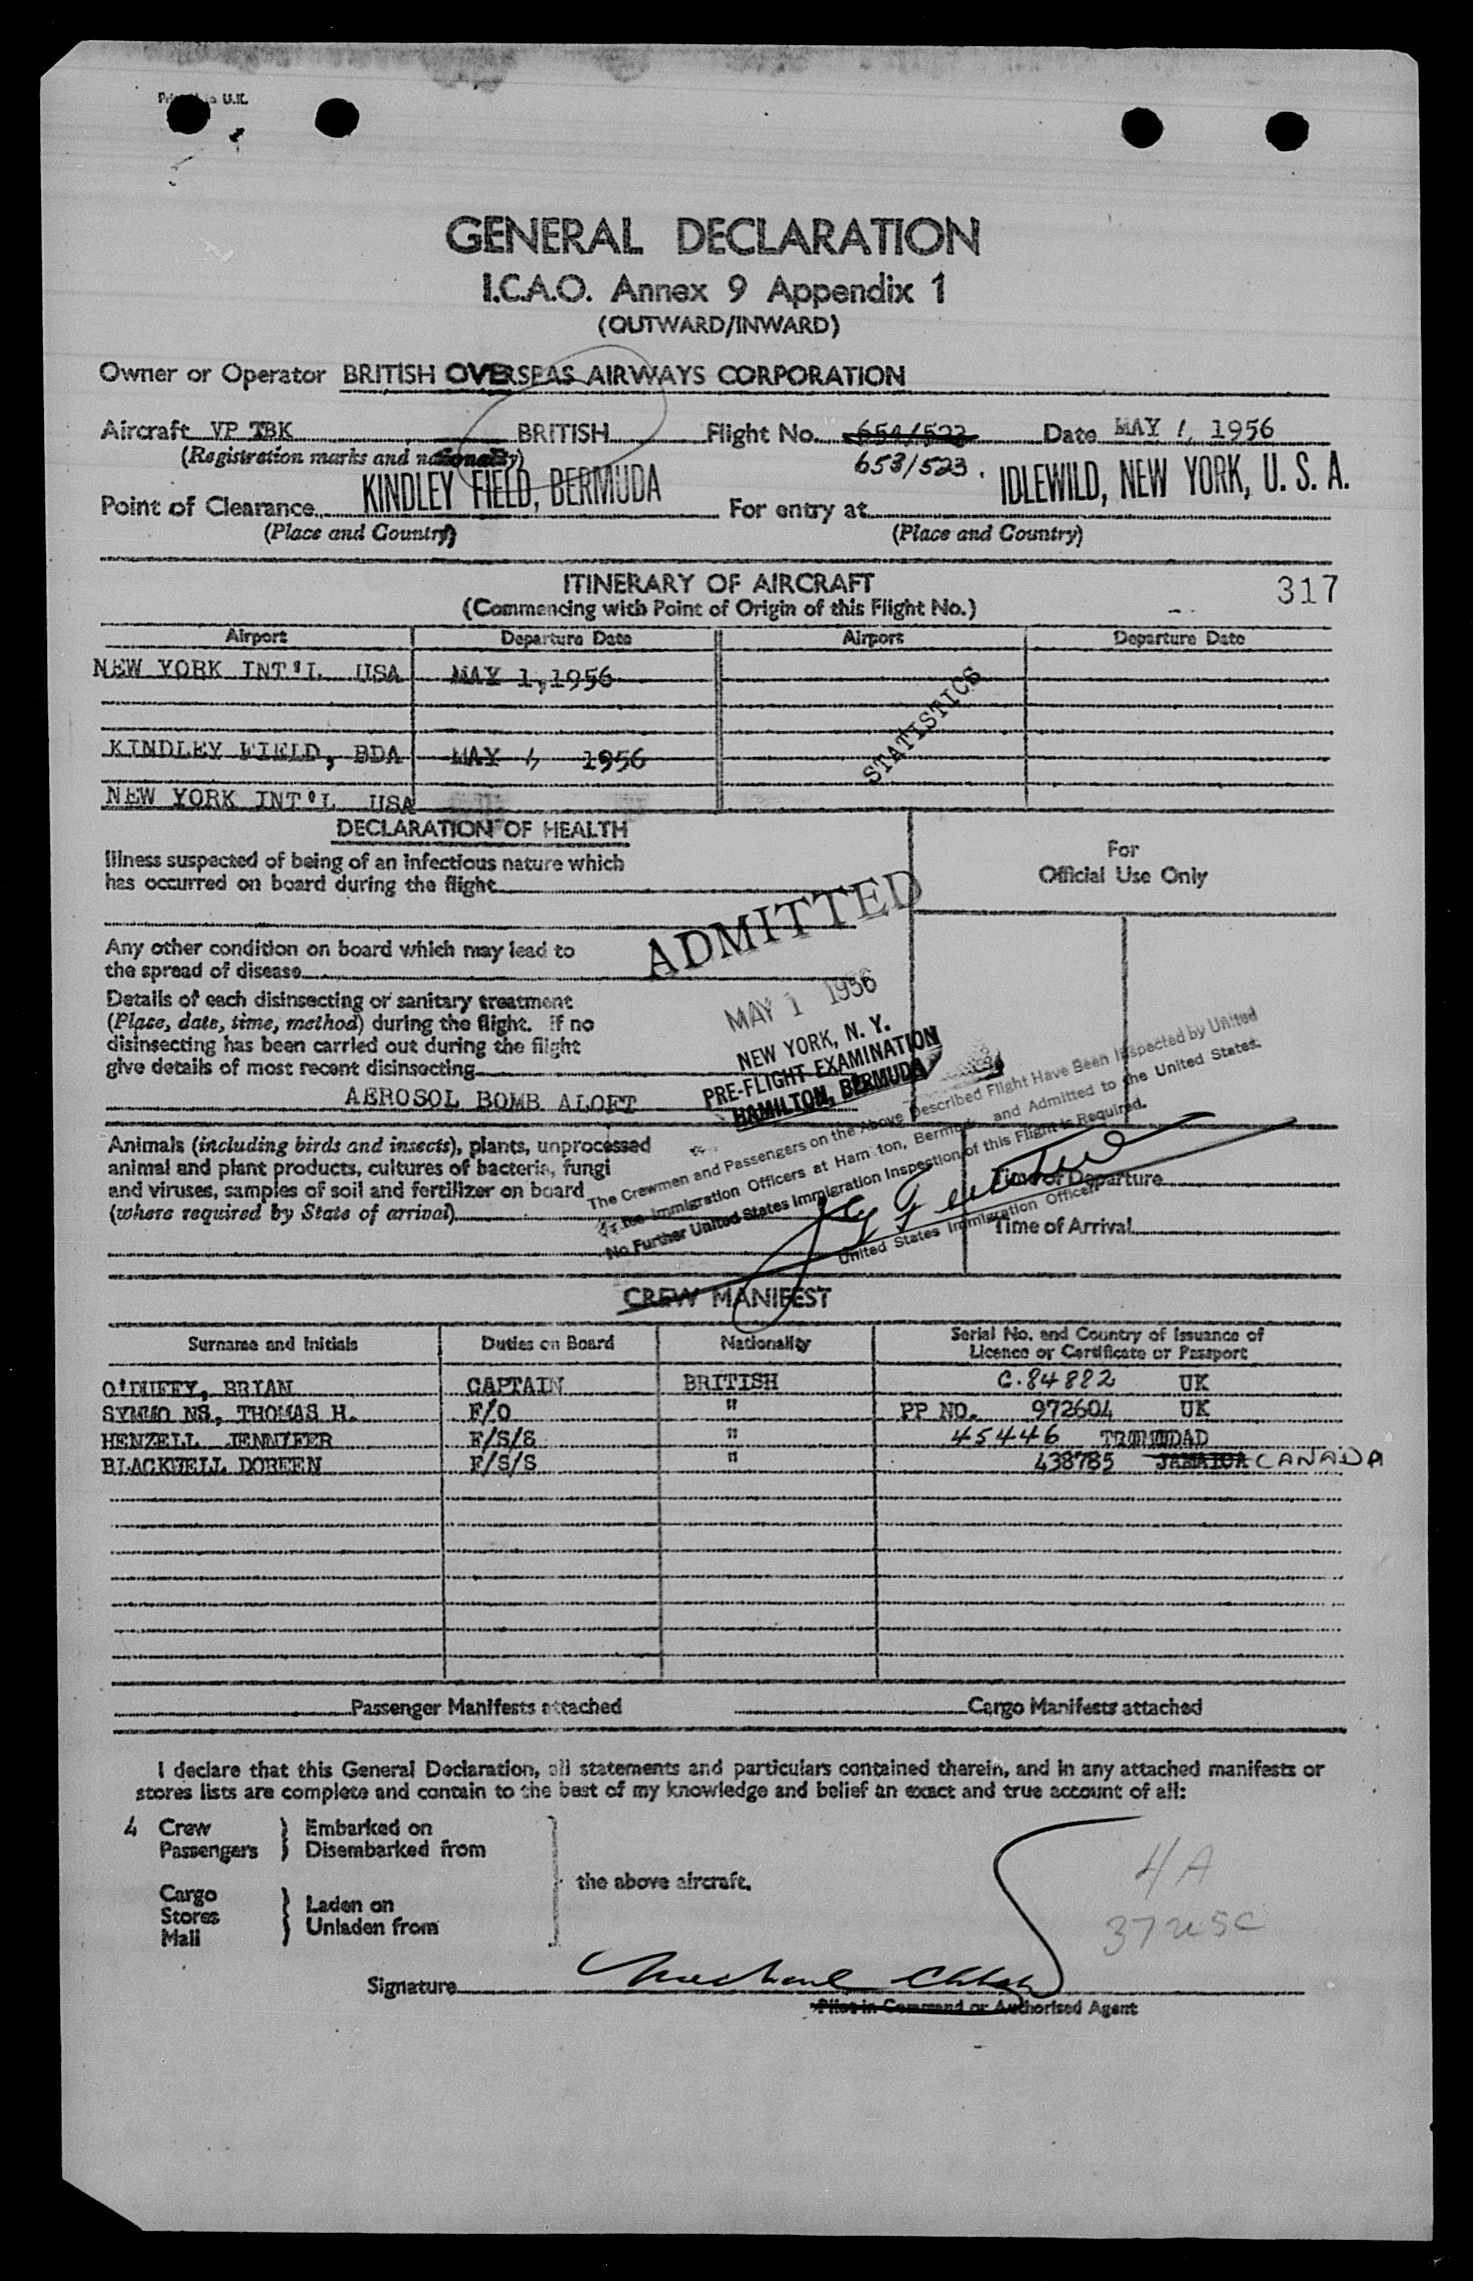 Printed in U.K.
GENERAL DECLARATION
I.C.A.O. Annex 9 Appendix 1
(OUTWARD/INWARD)
Owner or Operator BRITISH OVERSEAS AIRWAYS CORPORATION
Aircraft VP TBK BRITISH Flight No. 654/523 Date MAY 1, 1956
(Registration marks and nationality)
653/523.
Point of Clearance KINDLEY FIELD, BERMUDA For entry at IDLEWILD, NEW YORK, U. S. A.
(Place and Country) (Place and Country)
ITINERARY OF AIRCRAFT 317
(Commencing with Point of Origin of this Flight No.)
Airport Departure Date Airport Departure Date
NEW YORK INT'L USA MAY 1,1956
STATISTICS
KINDLEY FIELD, BDA MAY 1, 1956
NEW YORK INT'L USA
DECLARATION OF HEALTH
Illness suspected of being of an infectious nature which
has occurred on board during the flight
For
Official Use Only
ADMITTED
Any other condition on board which may lead to
the spread of disease
MAY 1 1956
Details of each disinsecting or sanitary treatment
(Place, date, time, method) during the flight. If no
disinsecting has been carried out during the flight
give details of most recent disinsecting
AEROSOL BOMB ALOFT
NEW YORK, N. Y.
PRE-FLIGHT EXAMINATION
HAMILTON, BERMUDA
The Crewmen and Passengers on the Above Described Flight Have Been Inspected by United
Immigration Officers at Hamilton, Bermuda and Admitted to the United States.
No Further United States Immigration Inspection of this Flight is Required.
United States Immigration Officer
Animals (including birds and insects), plants, unprocessed
animal and plant products, cultures of bacteria, fungi
and viruses, samples of soil and fertilizer on board
(where required by State of arrival)
Time of Departure
Time of Arrival
CREW MANIFEST
Surname and Initials Duties on Board Nationality Serial No. and Country of Issuance of
Licence or Certificate or Passport
O'DUFFY, BRIAN CAPTAIN BRITISH C.84882 UK
SYMMO NS, THOMAS H. F/O " PP NO. 972604 UK
HENZELL JENNIFER F/S/S " 45446 TRINIDAD
BLACKWELL DOREEN F/S/S " 438785 JAMAICA CANADA
Passenger Manifests attached Cargo Manifests attached
I declare that this General Declaration, all statements and particulars contained therein, and in any attached manifests or
stores lists are complete and contain to the best of my knowledge and belief an exact and true account of all:
4 Crew } Embarked on
Passengers } Disembarked from
the above aircraft.
Cargo
Stores } Laden on
Mail } Unladen from
4A
37 USC
Signature
Pilot in Command or Authorised Agent